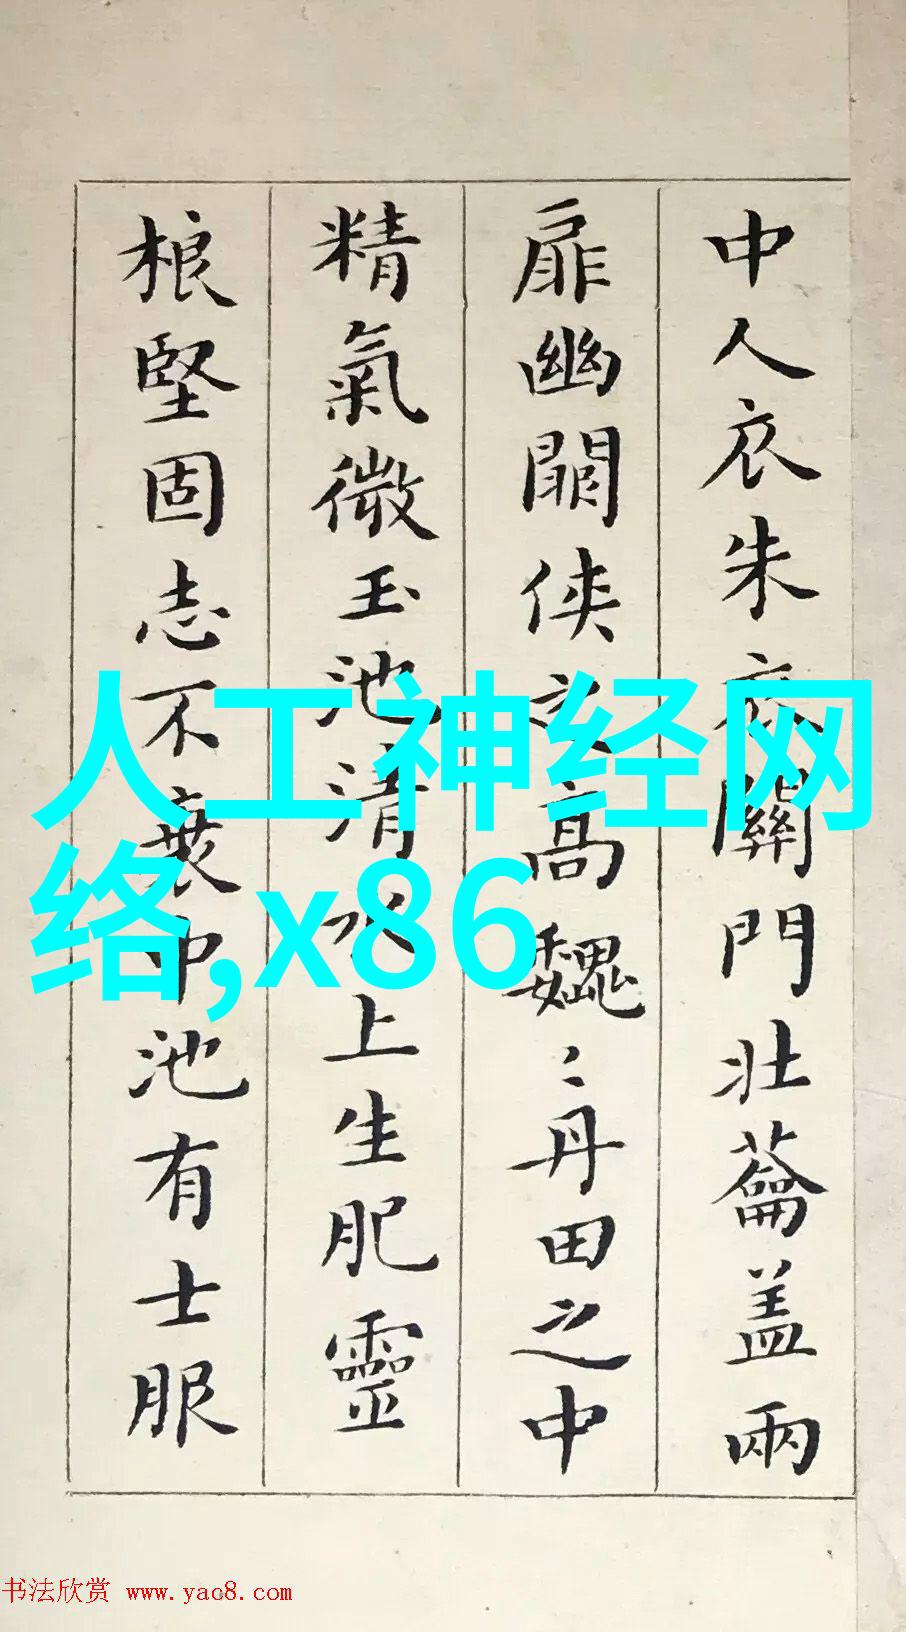 中人衣朱衣關門壯蘥盖兩
扉幽闗侠之高巍〻丹田之中
精氣微玉池清水上生肥靈
根堅固志不衰中池有士服
人工神经网
络,x86
书法欣赏 www.yac8.com